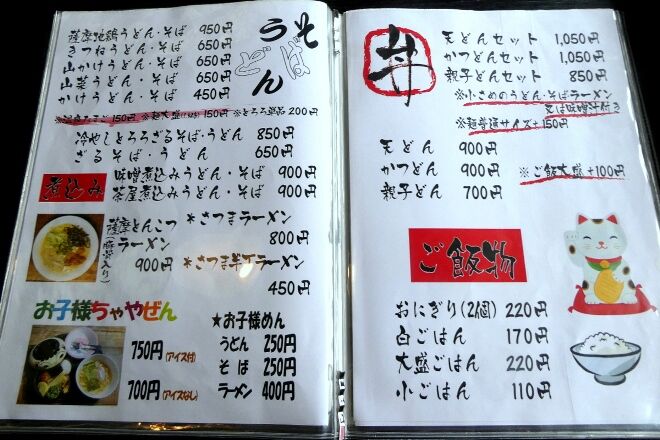 そば
うどん
薩摩地鶏うどん・そば 950円
きつねうどん・そば 650円
山かけうどん・そば 650円
山菜うどん・そば 650円
かけうどん・そば 450円
150円 150円 ※とろろ単品 200円
冷やしとろろざるそば・うどん 850円
ざるそば・うどん 650円
煮込み
味噌煮込みうどん・そば 900円
茶屋煮込みうどん・そば 900円
薩摩とんこつラーメン
(豚骨入り)
900円
*さつまラーメン
800円
*さつま半丁ラーメン
450円
お子様ちゃやぜん
750円(アイス付)
700円(アイスなし)
★お子様めん
うどん 250円
そば 250円
ラーメン 400円
丼
天どんセット 1,050円
かつどんセット 1,050円
親子どんセット 850円
※小さめのうどん・そば・ラーメン
又は味噌汁付き
※麺普通サイズ+150円
天どん 900円
かつどん 900円
親子どん 700円
※ご飯大盛+100円
ご飯物
おにぎり(2個) 220円
白ごはん 170円
大盛ごはん 220円
小ごはん 110円